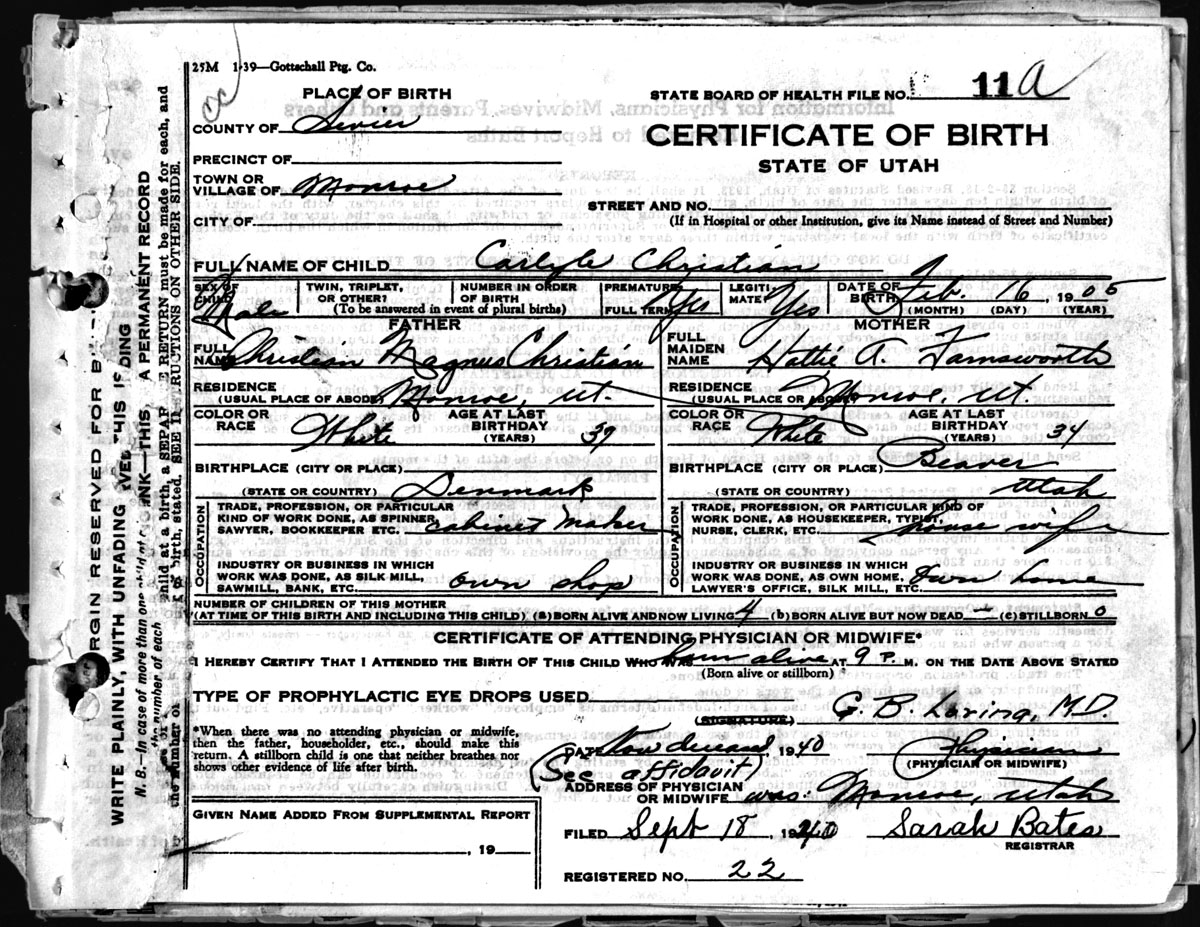 25M 1-39—Gottschall Ptg. Co.
PLACE OF BIRTH
STATE BOARD OF HEALTH FILE NO. 11a
COUNTY OF Sevier
CERTIFICATE OF BIRTH
STATE OF UTAH
PRECINCT OF
TOWN OR
VILLAGE OF Monroe
STREET AND NO.
CITY OF (If in Hospital or other Institution, give its Name instead of Street and Number)
FULL NAME OF CHILD Carlyle Christian
SEX OF CHILD Male TWIN, TRIPLET, OR OTHER? NUMBER IN ORDER OF BIRTH (To be answered in event of plural births) PREMATURE FULL TERM Yes LEGITI- MATE? Yes DATE OF BIRTH Feb. 16, 1905
(MONTH) (DAY) (YEAR)
FATHER
FULL NAME Christian Magnus Christian
RESIDENCE
(USUAL PLACE OF ABODE) Monroe, Ut.
COLOR OR RACE White AGE AT LAST BIRTHDAY (YEARS) 39
BIRTHPLACE (CITY OR PLACE)
(STATE OR COUNTRY) Denmark
OCCUPATION
TRADE, PROFESSION, OR PARTICULAR
KIND OF WORK DONE, AS SPINNER,
SAWYER, BOOKKEEPER ETC. Cabinet Maker
INDUSTRY OR BUSINESS IN WHICH
WORK WAS DONE, AS SILK MILL,
SAWMILL, BANK, ETC. own shop
MOTHER
FULL MAIDEN NAME Hattie A. Farnsworth
RESIDENCE
(USUAL PLACE OR ABODE) Monroe, Ut.
COLOR OR RACE White AGE AT LAST BIRTHDAY (YEARS) 34
BIRTHPLACE (CITY OR PLACE) Beaver
(STATE OR COUNTRY) Utah
OCCUPATION
TRADE, PROFESSION, OR PARTICULAR KIND OF
WORK DONE, AS HOUSEKEEPER, TYPIST,
NURSE, CLERK, ETC. House wife
INDUSTRY OR BUSINESS IN WHICH
WORK WAS DONE, AS OWN HOME,
LAWYER'S OFFICE, SILK MILL, ETC. Own home
NUMBER OF CHILDREN OF THIS MOTHER
(AT TIME OF THIS BIRTH AND INCLUDING THIS CHILD) (a) BORN ALIVE AND NOW LIVING 4 (b) BORN ALIVE BUT NOW DEAD — (c) STILLBORN 0
CERTIFICATE OF ATTENDING PHYSICIAN OR MIDWIFE*
I HEREBY CERTIFY THAT I ATTENDED THE BIRTH OF THIS CHILD WHO WAS born alive AT 9 P. M. ON THE DATE ABOVE STATED
(Born alive or stillborn)
TYPE OF PROPHYLACTIC EYE DROPS USED
(SIGNATURE) G. B. Loring, M.D.
*When there was no attending physician or midwife,
then the father, householder, etc., should make this
return. A stillborn child is one that neither breathes nor
shows other evidence of life after birth.
DATE Now deceased, 1940 Physician
(PHYSICIAN OR MIDWIFE)
(See affidavit)
ADDRESS OF PHYSICIAN
OR MIDWIFE was. Monroe, Utah
GIVEN NAME ADDED FROM SUPPLEMENTAL REPORT
, 19
FILED Sept 18, 1940 Sarah Bates
REGISTRAR
REGISTERED NO. 22
WRITE PLAINLY, WITH UNFADING INK—THIS A PERMANENT RECORD
N. B.—In case of more than one child at a birth, a SEPARATE RETURN must be made for each, and
the number of each of birth, stated. SEE INSTRUCTIONS ON OTHER SIDE.